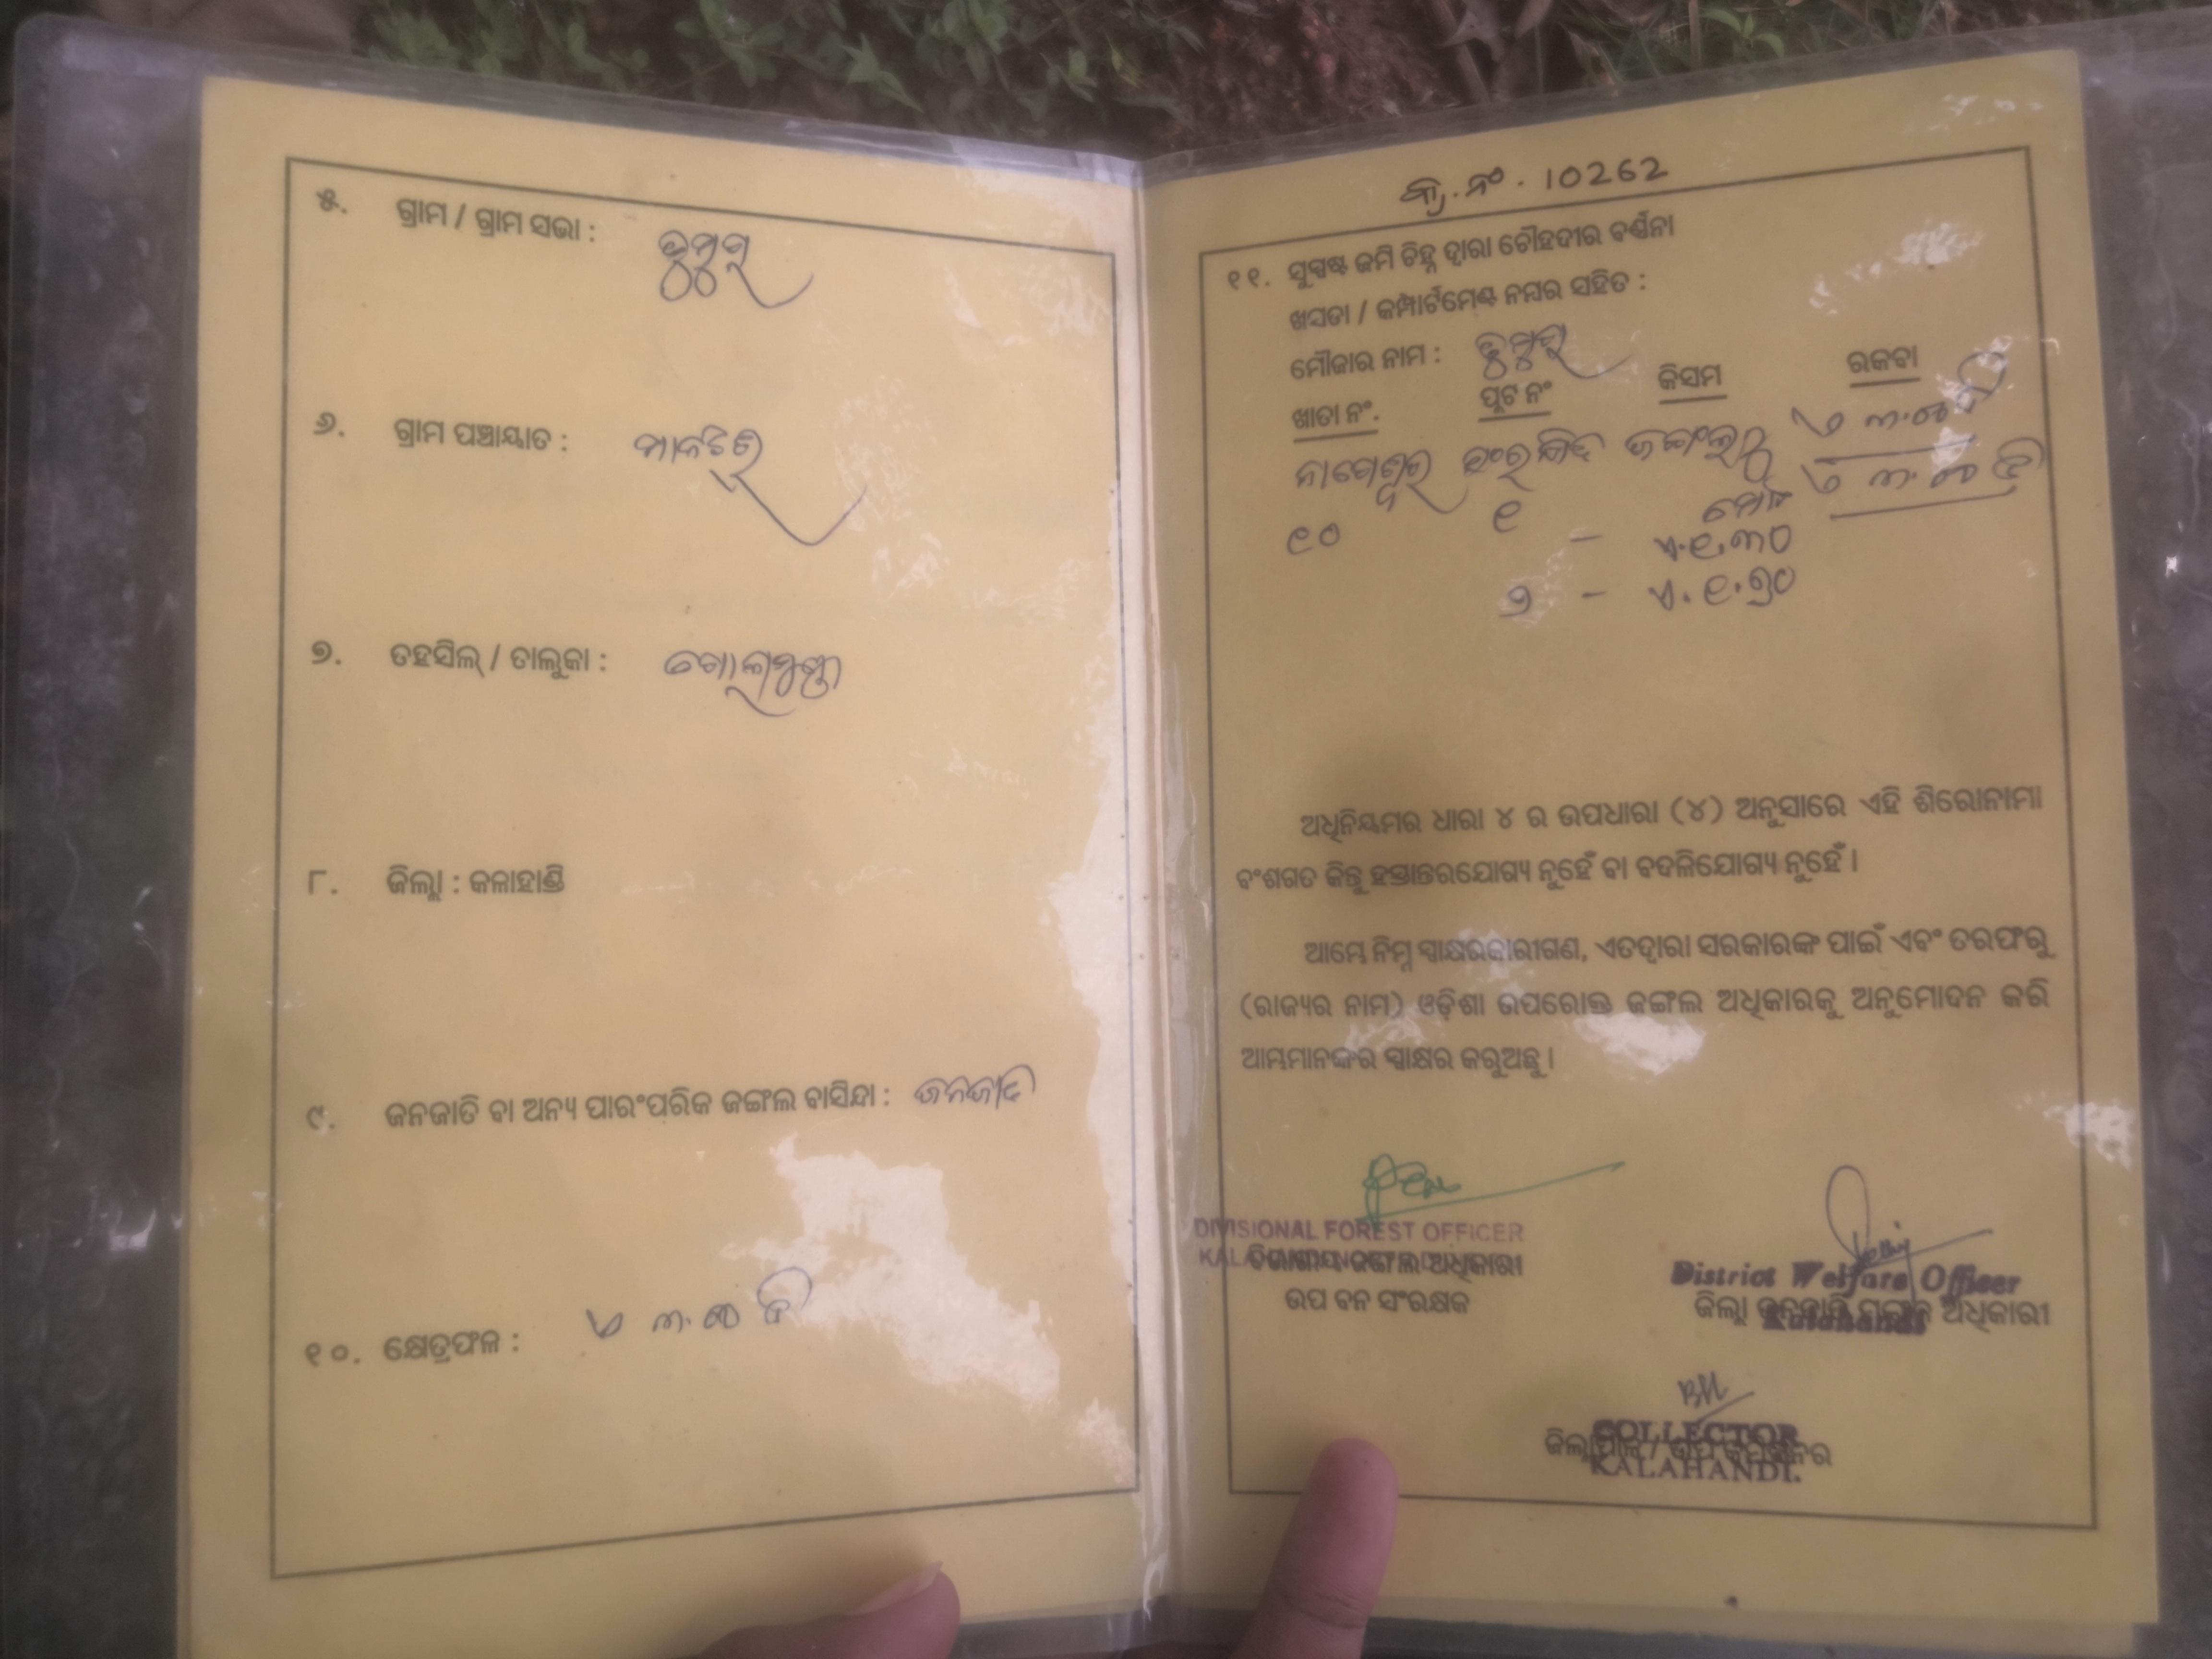 ୫. ଗ୍ରାମ / ଗ୍ରାମ ସଭା :
୬. ଗ୍ରାମ ପଞ୍ଚାୟାତ :
୭. ତହସିଲ୍ / ତାଲୁକା : ଗୋଲାମୁଣ୍ଡା
୮. ଜିଲ୍ଲା : କଳାହାଣ୍ଡି
୯. ଜନଜାତି ବା ଅନ୍ୟ ପାରଂପରିକ ଜଙ୍ଗଲ ବାସିନ୍ଦା : ଜନଜାତି
୧୦. କ୍ଷେତ୍ରଫଳ :
କ୍ର.ନଂ. 10262
୧୧. ସୁସ୍ପଷ୍ଟ ଜମି ଚିହ୍ନ ଦ୍ୱାରା ଚୌହଦୀର ବର୍ଣ୍ଣନା
ଖସଡା / କମ୍ପାର୍ଟମେଣ୍ଟ ନମ୍ବର ସହିତ :
ମୌଜାର ନାମ :
ଖାତା ନଂ. ପ୍ଲଟ ନଂ କିସମ ରକବା
ନାଗେଶ୍ୱର ସଂରକ୍ଷିତ ଜଙ୍ଗଲ
ମୋଟ
୧୦ ୧ – ଏ.୧.୩୦
୨ – ଏ.୧.୭୦
ଅଧିନିୟମର ଧାରା ୪ ର ଉପଧାରା (୪) ଅନୁସାରେ ଏହି ଶିରୋନାମା
ବଂଶଗତ କିନ୍ତୁ ହସ୍ତାନ୍ତରଯୋଗ୍ୟ ନୁହେଁ ବା ବଦଳିଯୋଗ୍ୟ ନୁହେଁ ।
ଆମ୍ଭେ ନିମ୍ନ ସ୍ୱାକ୍ଷରକାରୀଗଣ, ଏତଦ୍ୱାରା ସରକାରଙ୍କ ପାଇଁ ଏବଂ ତରଫରୁ
(ରାଜ୍ୟର ନାମ) ଓଡ଼ିଶା ଉପରୋକ୍ତ ଜଙ୍ଗଲ ଅଧିକାରକୁ ଅନୁମୋଦନ କରି
ଆମ୍ଭମାନଙ୍କର ସ୍ୱାକ୍ଷର କରୁଅଛୁ ।
DIVISIONAL FOREST OFFICER
ଜଙ୍ଗଲ ଅଧିକାରୀ
ଉପ ବନ ସଂରକ୍ଷକ
District Welfare Officer
ଜିଲ୍ଲା ଜନଜାତି ମଙ୍ଗଳ ଅଧିକାରୀ
Kalahandi
COLLECTOR
KALAHANDI.